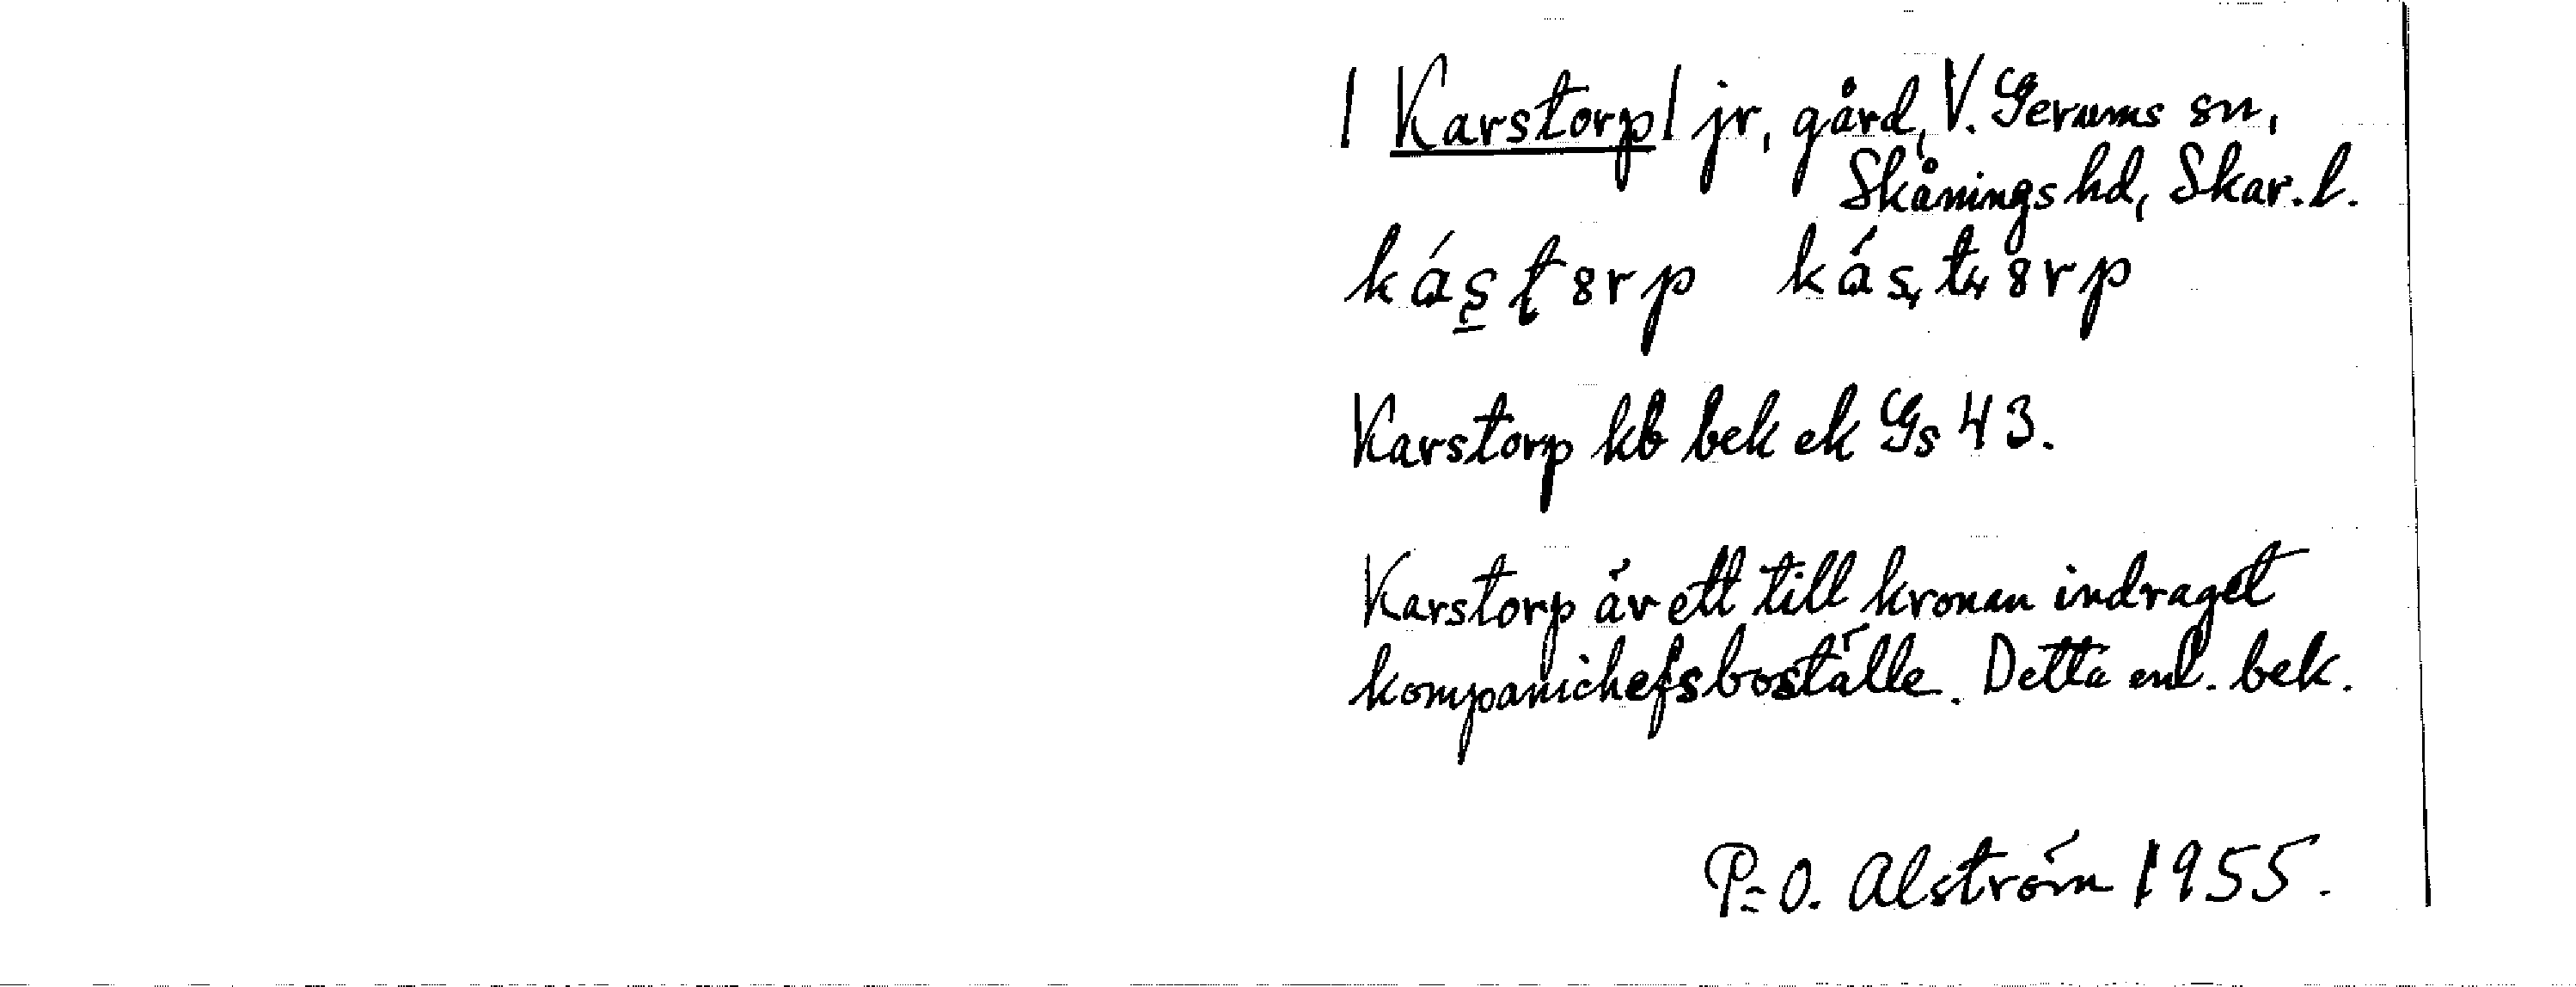 / Karstorp / jr, gård, V. Gerums sn,
Skånings hd, Skar. l.
káʂʈ8rp kás,t,8rp
Karstorp kb bek ek Gs 43.
Karstorp är ett till kronan indraget
kompanichefsboställe. Detta enl. bek.
P-O. Alström 1955.